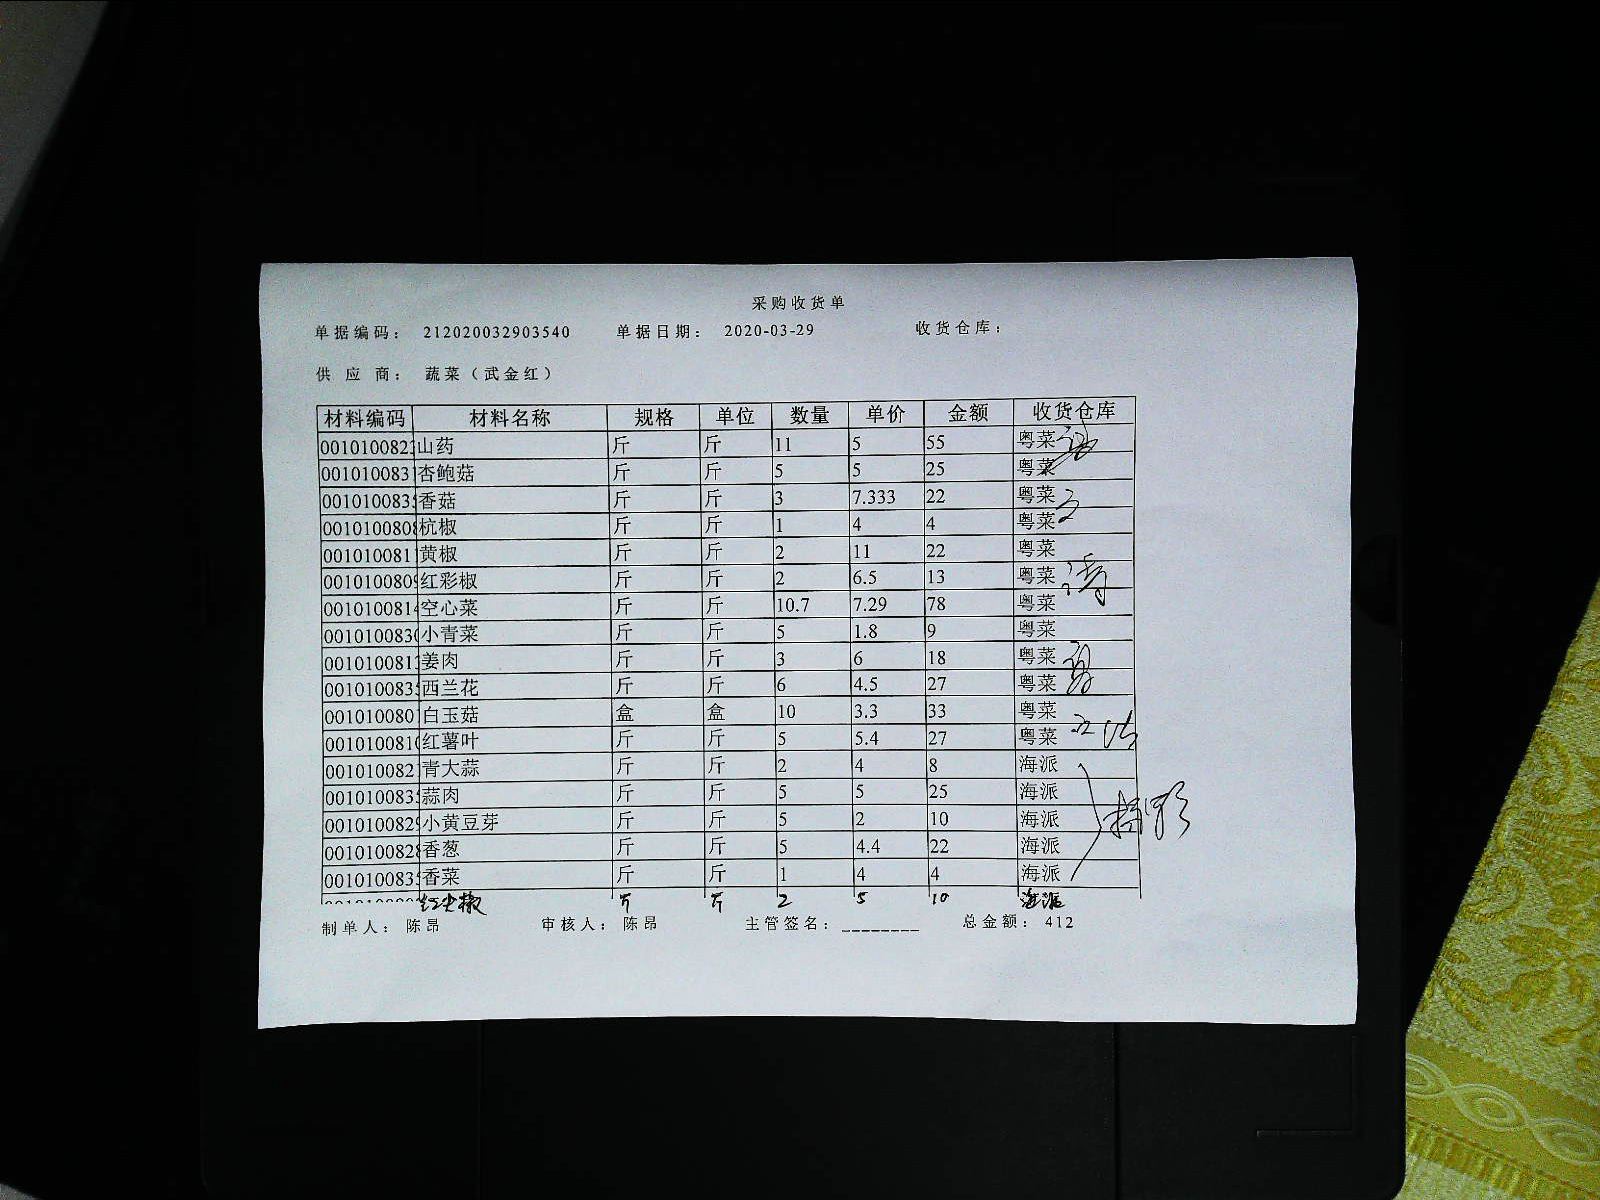 采购收货单
单据编码： 212020032903540 单据日期： 2020-03-29 收货仓库：
供应商： 蔬菜（武金红）
材料编码 材料名称 规格 单位 数量 单价 金额 收货仓库
001010082 山药 斤 斤 11 5 55 粤菜
001010083 杏鲍菇 斤 斤 5 5 25 粤菜
001010083 香菇 斤 斤 3 7.333 22 粤菜
001010080 杭椒 斤 斤 1 4 4 粤菜
001010081 黄椒 斤 斤 2 11 22 粤菜
001010080 红彩椒 斤 斤 2 6.5 13 粤菜
001010081 空心菜 斤 斤 10.7 7.29 78 粤菜
001010083 小青菜 斤 斤 5 1.8 9 粤菜
001010081 姜肉 斤 斤 3 6 18 粤菜
001010083 西兰花 斤 斤 6 4.5 27 粤菜
001010080 白玉菇 盒 盒 10 3.3 33 粤菜
001010081 红薯叶 斤 斤 5 5.4 27 粤菜
001010082 青大蒜 斤 斤 2 4 8 海派
001010083 蒜肉 斤 斤 5 5 25 海派
001010082 小黄豆芽 斤 斤 5 2 10 海派
001010082 香葱 斤 斤 5 4.4 22 海派
001010083 香菜 斤 斤 1 4 4 海派
红尖椒 斤 斤 2 5 10 海派
制单人： 陈昂 审核人： 陈昂 主管签名：________ 总金额： 412